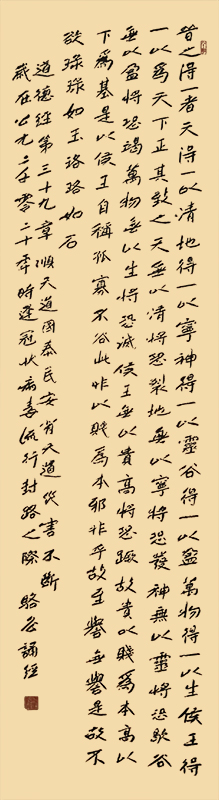 昔之得一者天得一以清地得一以寧神得一以靈谷得一以盈萬物得一以生侯王得
一以為天下正其致之天無以清將恐裂地無以寧將恐發神無以靈將恐歇谷
無以盈將恐竭萬物無以生將恐滅侯王無以貴高將恐蹶故貴以賤為本高以
下為基是以侯王自稱孤寡不谷此非以賤為本邪非乎故至譽無譽是故不
欲琭琭如玉珞珞如石
道德經第三十九章 順天道國泰民安背天道災害不斷
歲在公元二千零二十年時逢冠狀病毒流行封路之際 駱 誦經